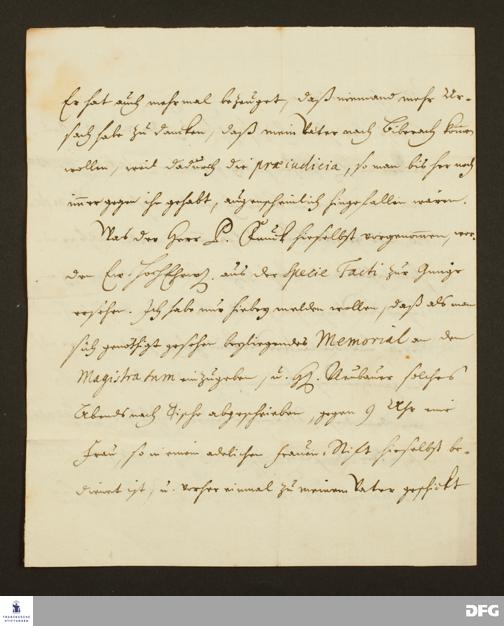 Er hat auch mehrmal bezeuget, daß niemand mehr Ur-
sach habe zu dancken, daß mein Vater nach Biberach kommen
wollen, weil dadurch die præiudicia, so man bis her noch
immer gegen ihn gehabt, augenscheinlich hingefallen wären.
Was der Herr P. hieselbst vorgenommen, wer-
den Ew. HochEhrw. aus der Specie Facti zur Gnüge
ersehen. Ich habe nur hiebey melden wollen, daß als man
sich genöthiget gesehen beyliegendes Memorial an den
Magistratum einzugeben, u. H. Neubauer solches
Abends nach Tische abgeschrieben, gegen 9 Uhr eine
Frau, so in einem adelichen Frauen-Stift hieselbst be-
dienet ist, u. vorher einmal zu meinem Vater geschickt
FRANCKESCHE
STIFTUNGEN
DFG